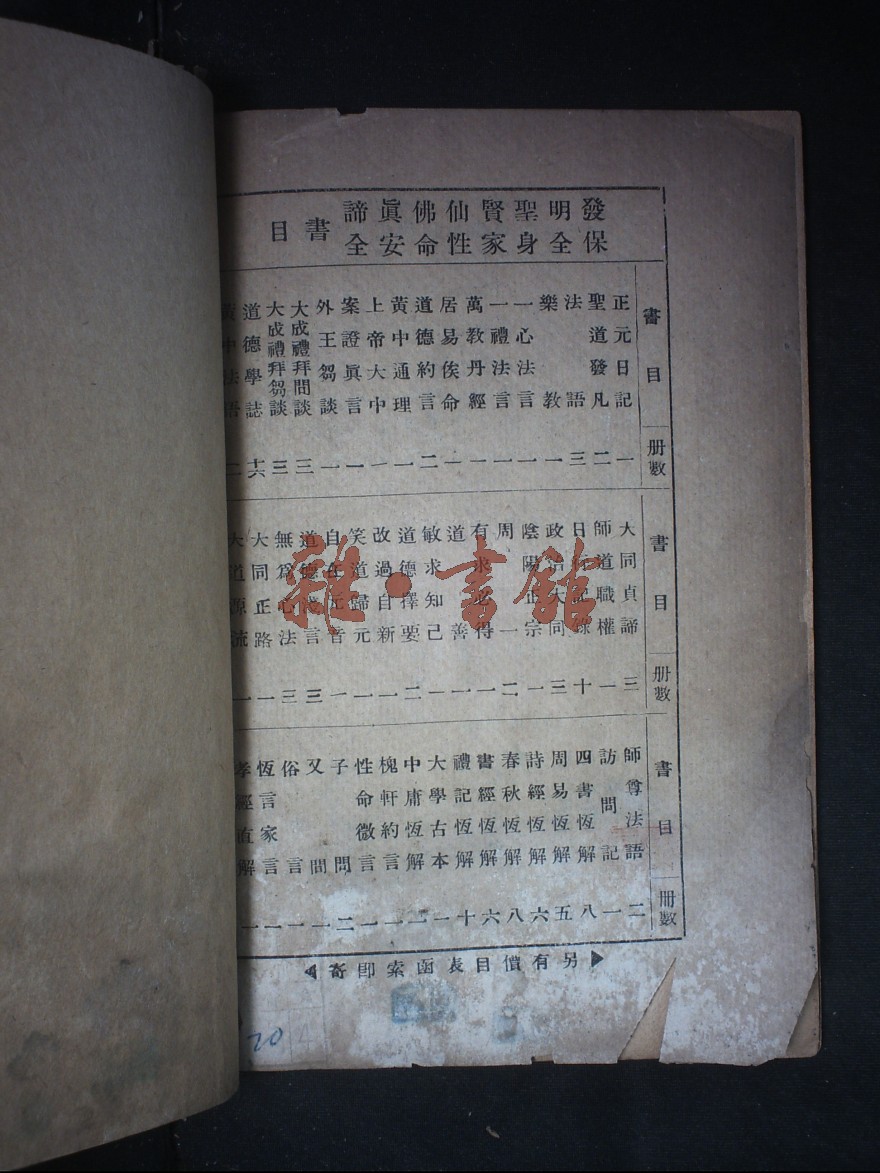 發明聖賢仙佛眞諦
保全身家性命安全
書目
書目 冊數
正元日記 一
聖道發凡 二
法語 三
樂教 一
一心法言 一
一禮法言 一
萬教丹經 一
居易俟命 一
道德約言 二
黃中通理 一
上帝大中 一
案證眞言 一
外王芻談 一
大成禮拜問談 三
大成禮拜芻談 三
道德學誌 十六
黃中法語 二
書目 冊數
大同貞諦 三
師道職權 一
日行記錄 十
政治大同 一
陰陽正宗 三
周一 二
有求必得 一
道善 一
敏求知己 一
道德擇要 二
改過自新 一
笑道歸元 一
自在元音 一
道德淺言 三
無爲心法 三
大同正路 一
大道源流 一
書目 冊數
師尊法語 二
訪問記 一
四書恆解 八
周易恆解 五
詩經恆解 六
春秋恆解 八
書經恆解 六
禮記恆解 十
大學古本 一
中庸恆解 二
槐軒約言 一
性命微言 一
子問 二
又問 一
俗言 一
恆言家言 一
孝經直解 一
▶另有價目表函索即寄◀
雜·書館
20